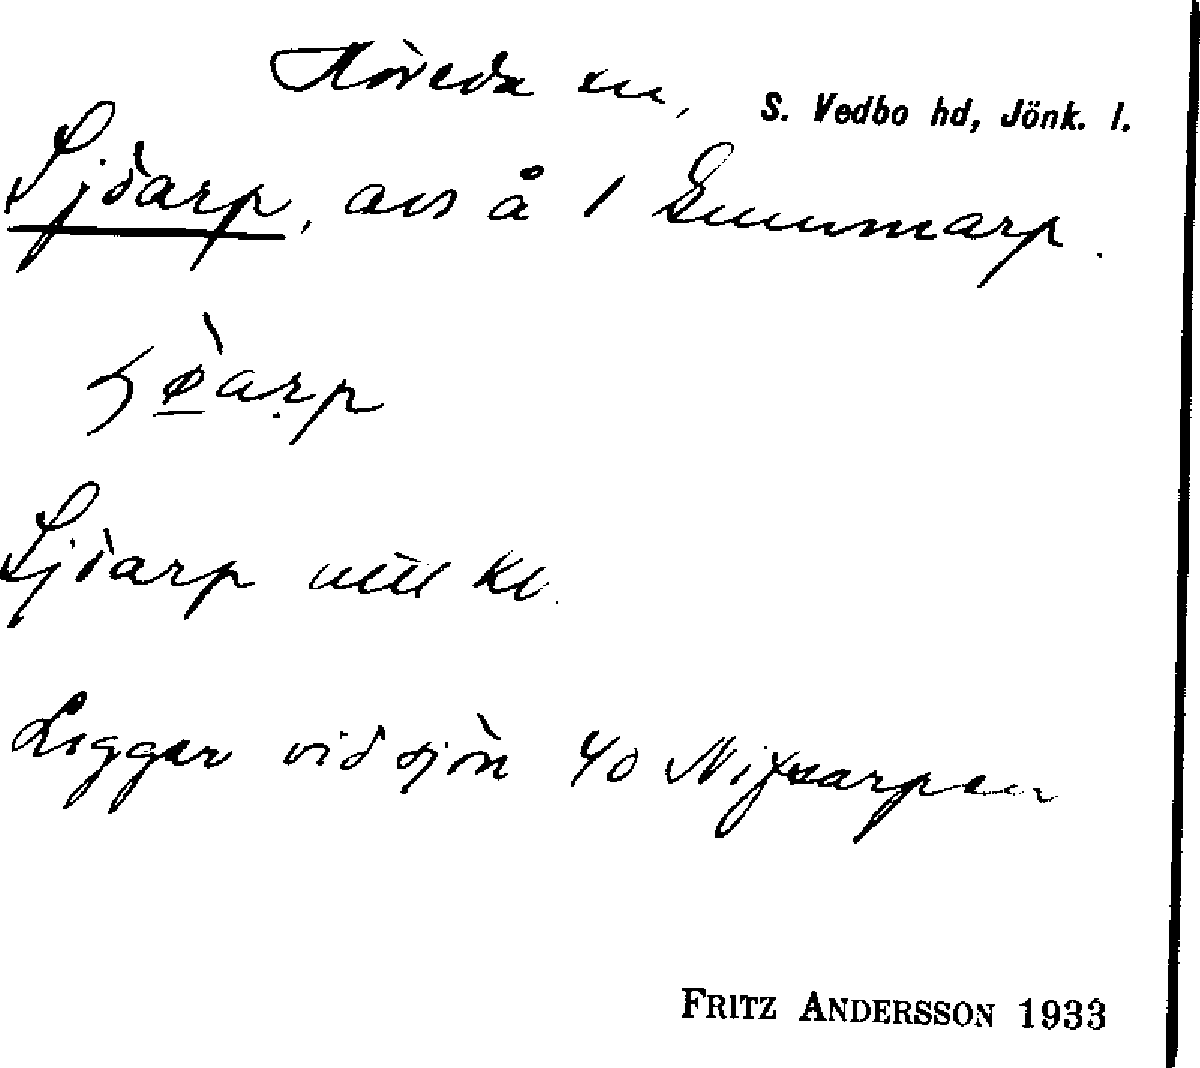 Höreda sn, S. Vedbo hd, Jönk. l.
Sjöarp, avs å 1 Gummarp.
Sjöarp uttl kl.
Ligger vid sjön 40 Nifsarpen
FRITZ ANDERSSON 1933